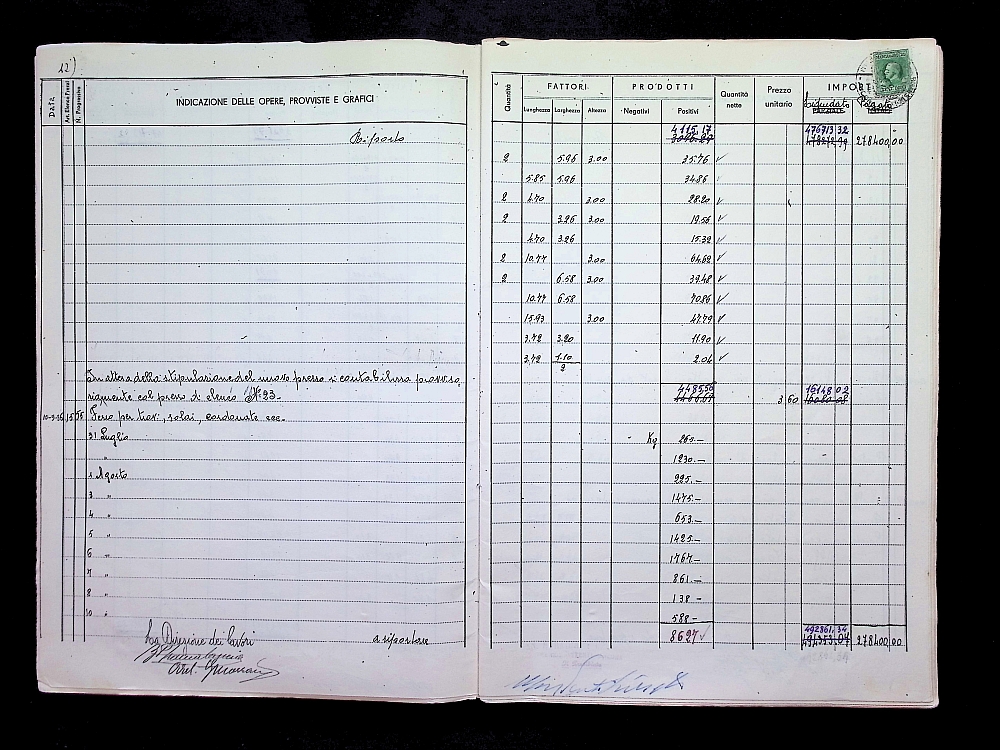 12)
Data
N. Progressivo
INDICAZIONE DELLE OPERE, PROVVISTE E GRAFICI
Riporto
In attesa della stipulazione del nuovo prezzo si contabilizza provviso
riamente col prezzo di elenco N° 23-
Ferro per travi, solai, cordonate ecc-
31 Luglio
1 Agosto
3 "
4 "
5 "
6 "
7 "
8 "
10 "
La Direzione dei Lavori
a riportare
Quantità
FATTORI
PRODOTTI
Quantità nette
Prezzo unitario
IMPORTI
Lunghezza Larghezza Altezza Negativi Positivi
liquidato
4115,17 476713 32
278400,00
2 5.96 3.00 35.76 ✓
5.85 5.96 34.86
2 4.70 3.00 28.20 ✓
2 3.26 3.00 19.56 ✓
4.70 3.26 15.32 ✓
2 10.77 3.00 64.62 ✓
2 6.58 3.00 39.48 ✓
10.77 6.58 70.86 ✓
15.93 3.00 47.79 ✓
3.72 3.20 11.90 ✓
3.72 1.10/2 2.04 ✓
4485,56 16148 02
3 60
Kg 265.—
1230.—
225.—
1475.—
653.—
1425.—
1767.—
861.—
138 —
588 —
8627 ✓ 492861.34
278400,00